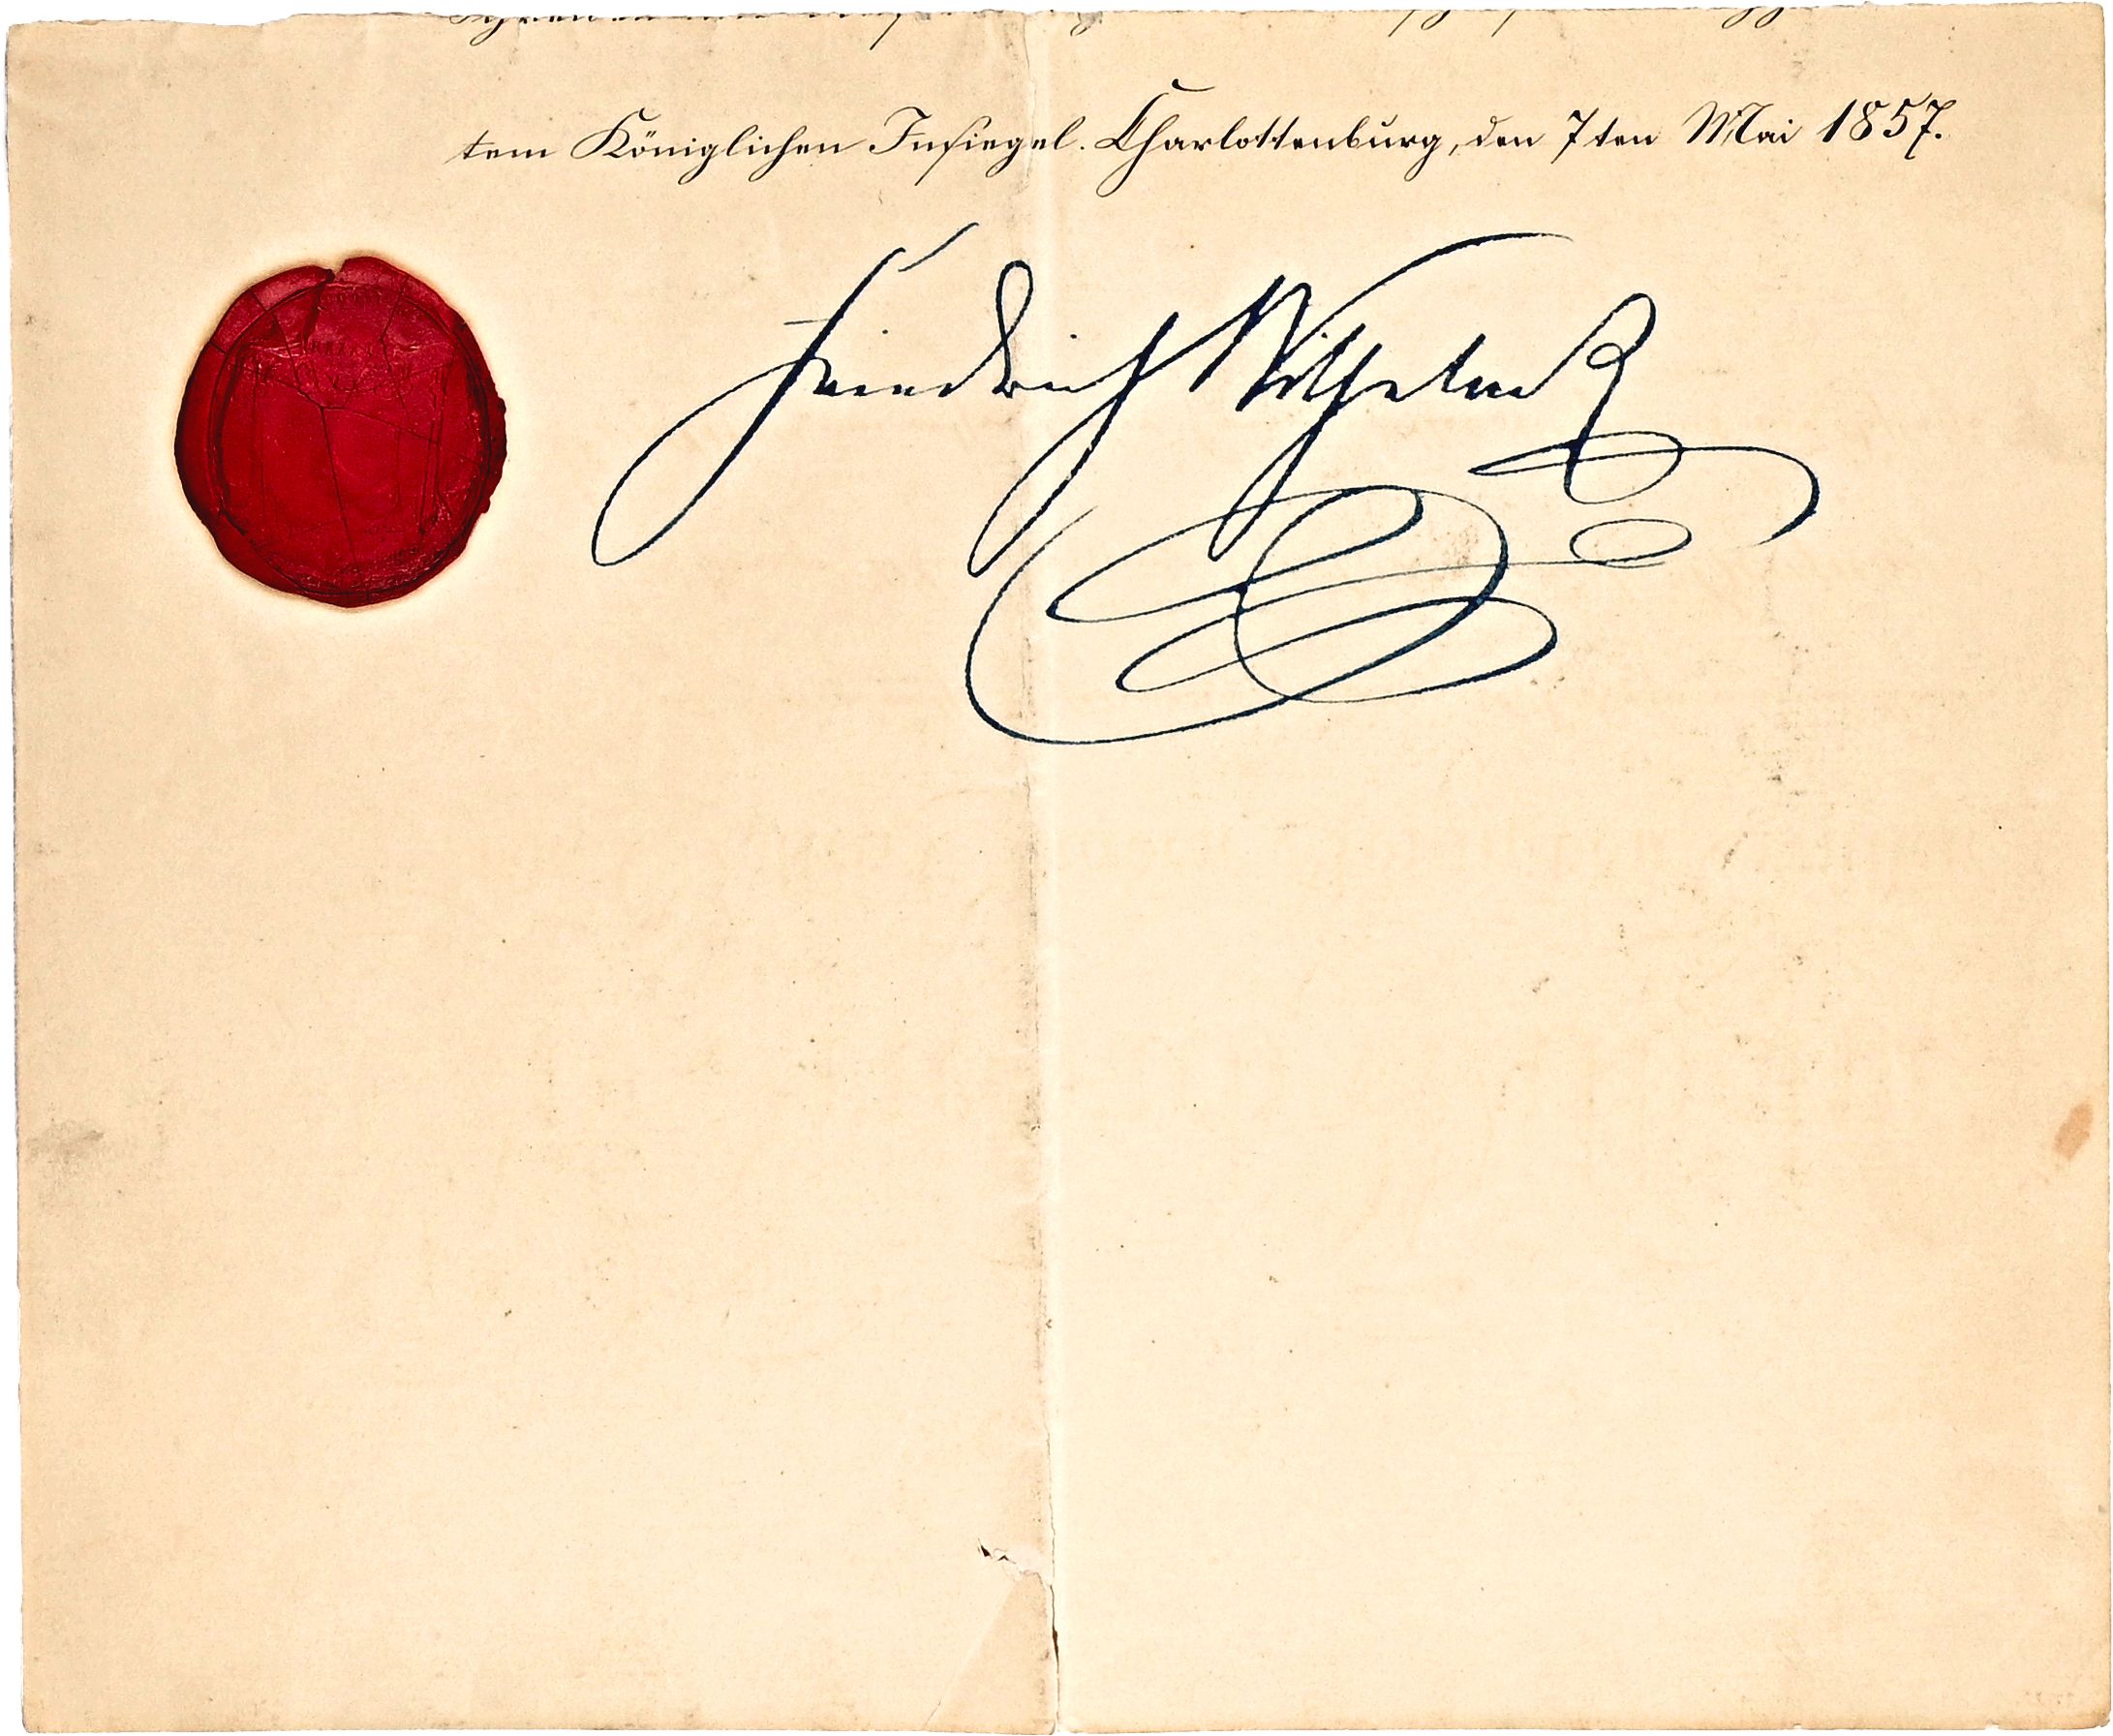 tem Königlichen Insiegel. Charlottenburg, den 7ten Mai 1857.
Friedrich Wilhelm R